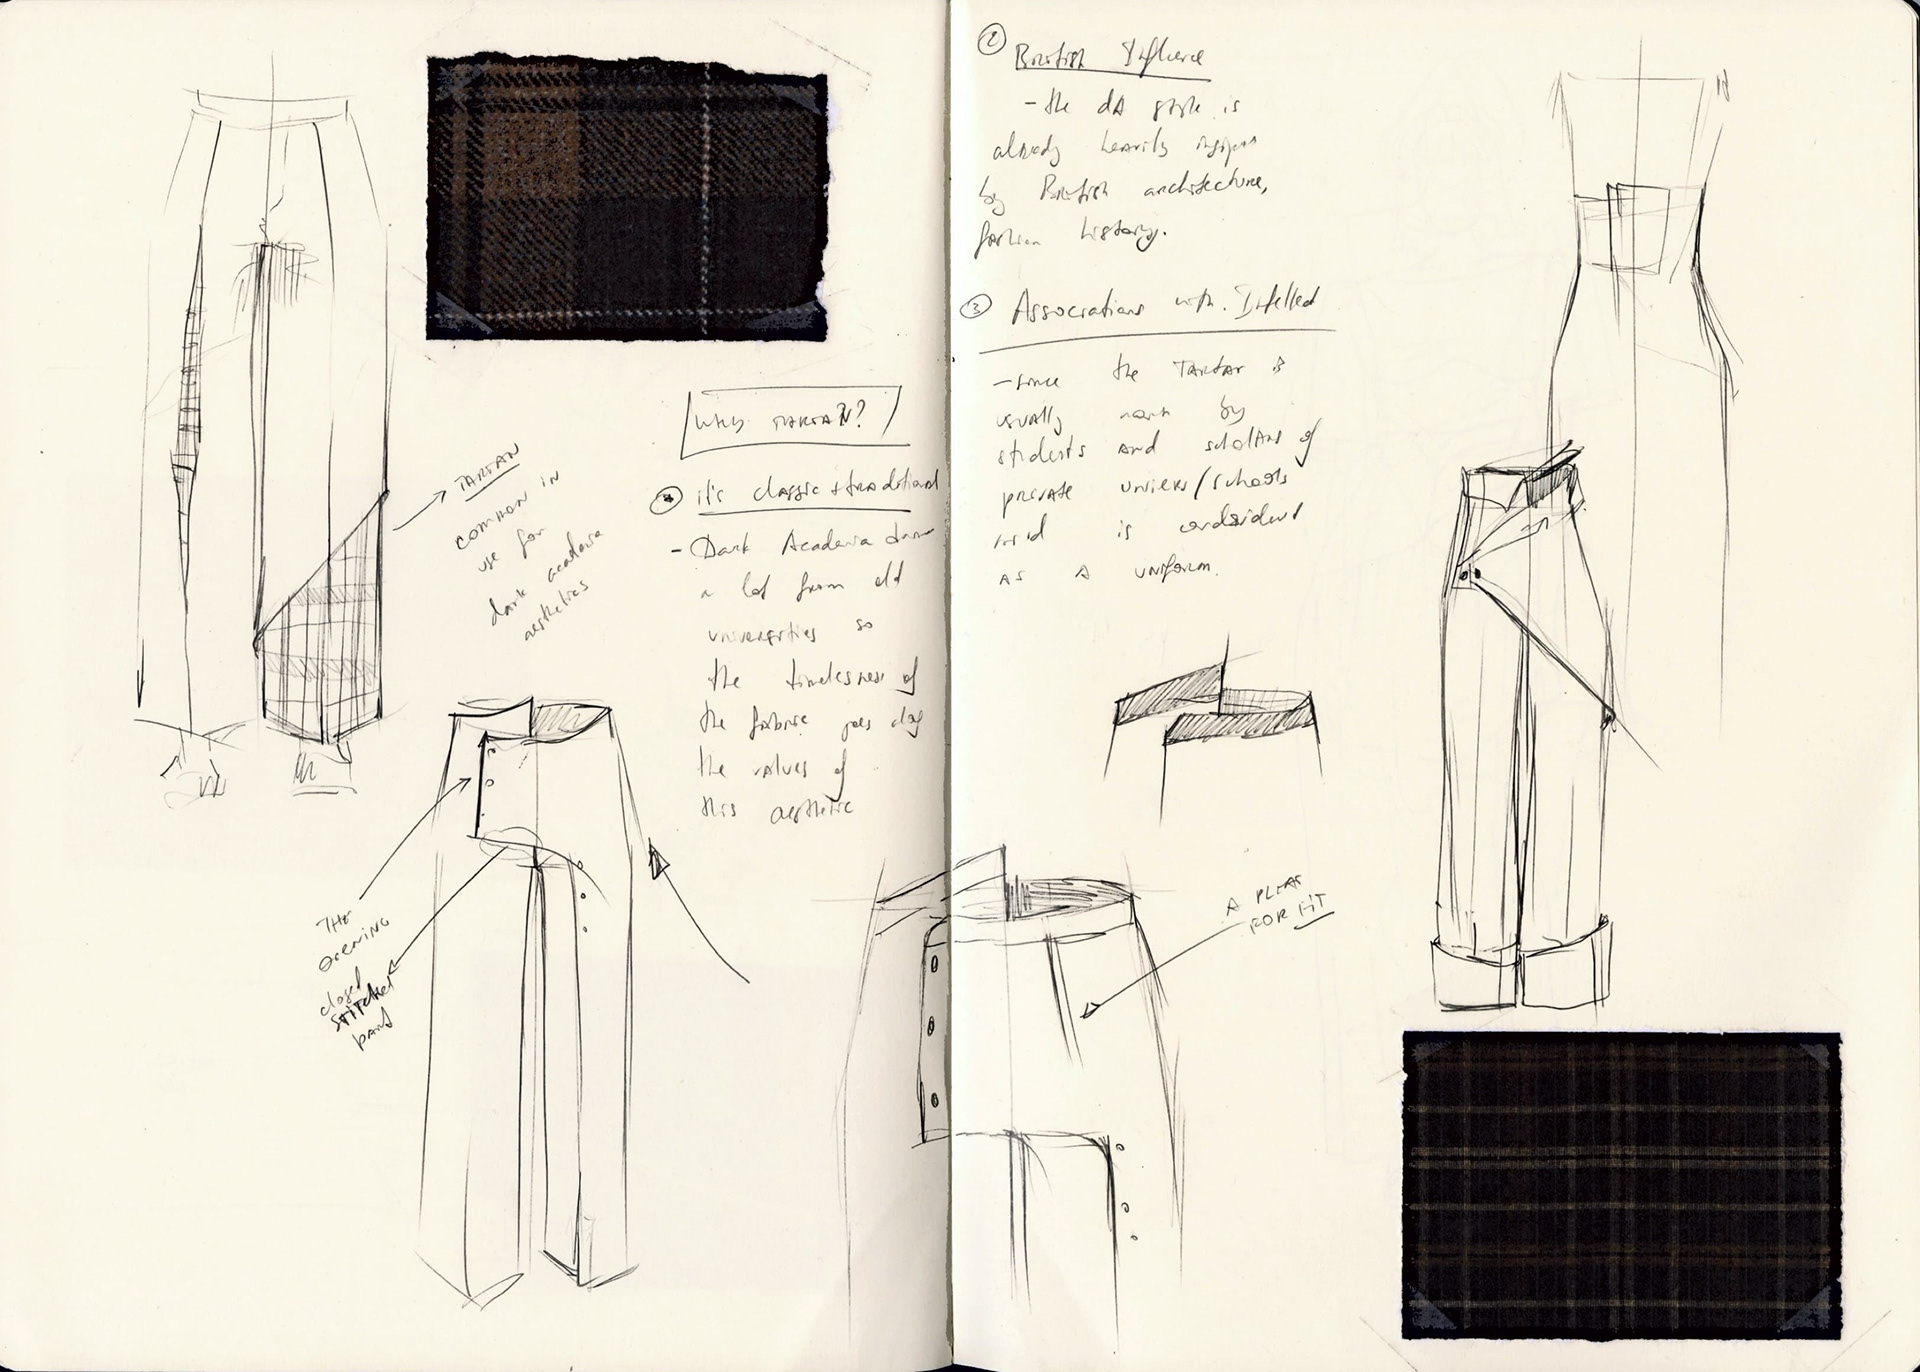 TARTAN
common in
use for
dark academia
aesthetics
WHY TARTAN?
it's classic + traditional
- Dark Academia draws
a lot from old
universities so
the timelesness of
the fabric goes
the values of
this aesthetic
THE
OPENING
closed
STITCHED
band
2 British Influence
- the dA style is
already heavily
by British architecture,
fashion history.
3 Associations with. Intellect
- since the TARTAN is
usually worn by
students and scholars of
private univers/schools
and is considered
AS A uniform.
A PLEAT
FOR FIT